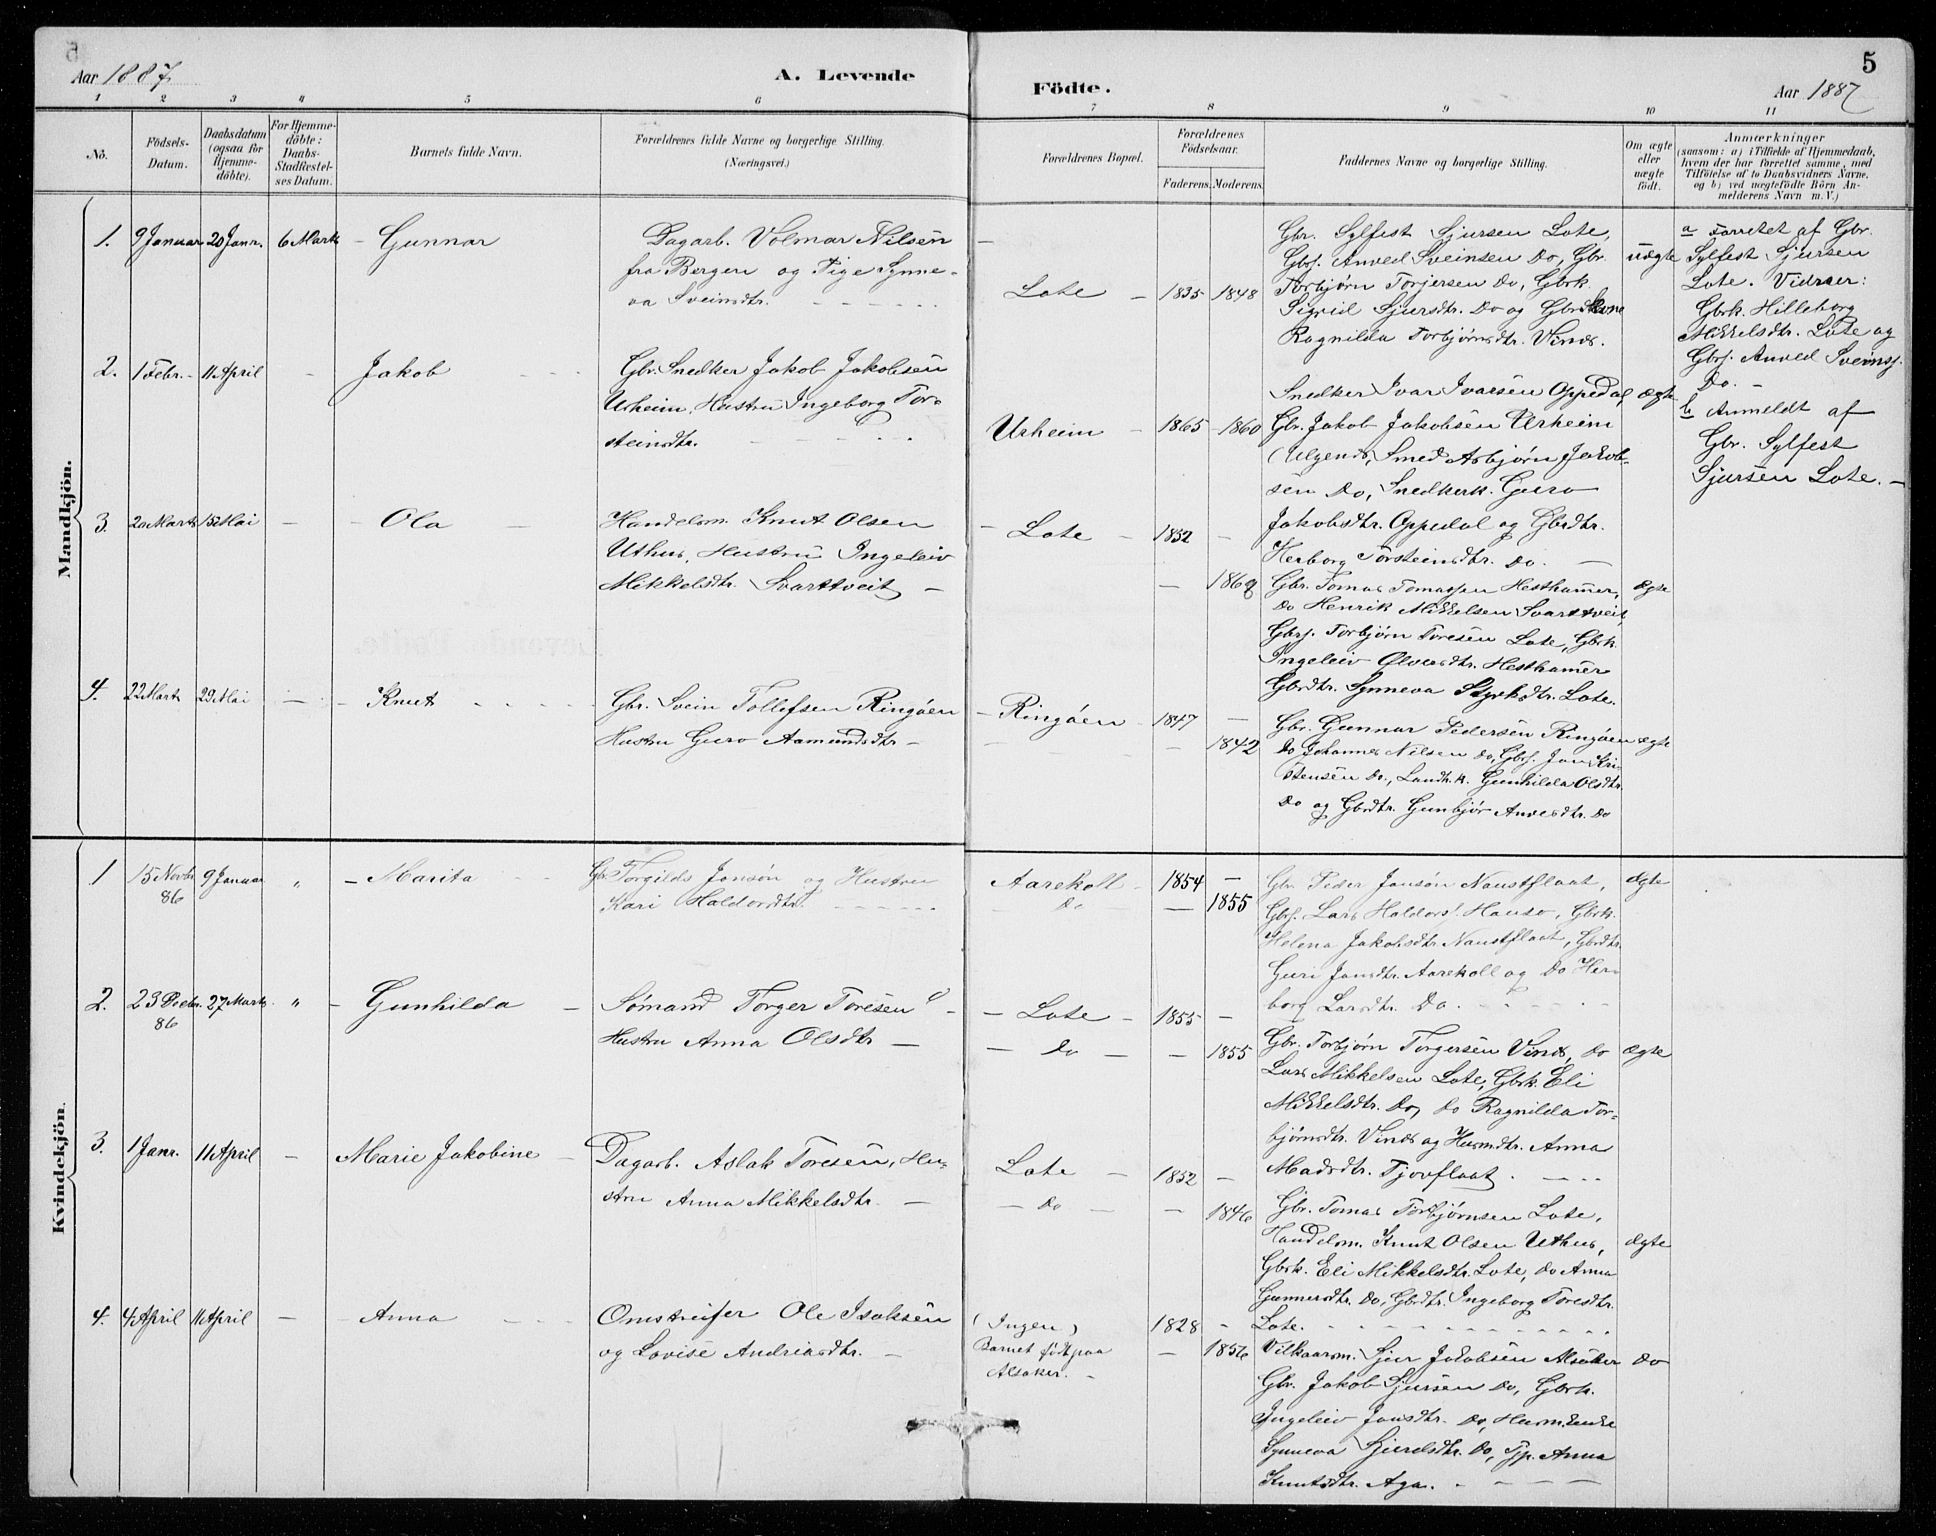 Aar 1887. A. Levende Födte. Aar 1887 5
1 2 3 4 5 6 7 8 9 10 11
No. Födsels-Datum. Daabsdatum (ogsaa for Hjemme-döbte). For Hjemme-döbte: Daabs-Stadfæstel-ses Datum. Barnets fulde Navn. Forældrenes fulde Navne og borgerlige Stilling. (Næringsvei.) Forældrenes Bopæl. Forældrenes Födselsaar. Faderens. Moderens. Faddernes Navne og borgerlige Stilling. Om ægte eller uægte födt. Anmærkninger (saasom: a) i Tilfælde af Hjemmedaab, hvem der har forrettet samme, med Tilföielse af to Daabsvidners Navne. og b) ved uægtefödte Börn An-melderens Navn m. V.)
Mandkjön.
1. 9 Januar 20 Janr. 6 Marts Gunnar
Dagarb. Volmar Nilsen
fra Bergen og Pige Synne-
va Sveinsdtr.
Lote 1835 1848
Gbr. Sylfest Sjursen Lote,
Gbrs. Anved Sveinsen Do, Gbr.
Torbjørn Torjersen Do, Gbrk.
Sigrid Sjursdtr. Do og Gbrdkone
Ragnilda Torbjørnsdtr. Vines.
uægte
a Forretet af Gbr.
Sylfest Sjursen
Lote. Vidner:
Gbrk. Hilleborg
Mikkelsdtr. Lote og
Gbrs. Anved Sveinss.
Do.
b Anmeldt af
Gbr. Sylfest
Sjursen Lote.
2. 1 Febr. 11 April Jakob
Gbr. Snedker Jakob Jakobsen
Urheim, Hustru Ingeborg Tor-
steinsdtr.
Urheim 1865 1860
Snedker Ivar Ivarsen Oppedal, ægte
Gbr. Jakob Jakobsen Urheim
Ulgenes, Smed Asbjørn Jakob-
sen Do, Snedkerk. Guro
Jakobsdtr. Oppedal og Gbrdtr.
Herborg Torsteinsdtr. Do.
3. 20 Marts 15 Mai Ola
Handelsm. Knut Olsen
Uthus, Hustru Ingeleiv
Mikkelsdtr. Svarttveit
Lote 1852
1862
Gbr. Tomas Tomassen Hesthamer, ægte
Do Henrik Mikkelsen Svarttveit,
Gbrs. Torbjørn Toresen Lote, Gbrk.
Ingeleiv Olvesdtr. Hesthamer
Gbrdtr. Synneva Styrksdtr. Lote.
4. 22 Marts 29 Mai Knut
Gbr. Svein Tollefsen Ringøen
Hustru Guro Aamundsdtr
Ringøen 1847
1842
Gbr. Gunnar Pedersen Ringøen ægte
Do Johannes Nilsen Do, Gbrs. Jon Kri-
stensen Do, Landh.k. Gunhilda Olsdtr.
Do og Gbrdtr. Gunbjør Anvesdtr. Do
Kvindekjön.
1 15 Novbr 86 9 Januar " Marita
Gbr. Torgils Jonsøn og Hustru
Kari Haldorsdtr.
Aarekoll 1854
Do 1855
Gbr. Peder Jonsøn Naustflaat, ægte
Gbrs. Lars Haldors. Hauso, Gbrk.
Helena Jakobsdtr. Naustflaat, Gbrdtr.
Guri Jonsdtr. Aarekoll og Do Her-
borg Larsdtr. Do.
2. 23 Decbr. 86 27 Marts " Gunhilda
Sømand Torger Toresen
Hustru Anna Olsdtr
Lote 1855
Do 1855
Gbr. Torbjørn Torgersen Vines, Do ægte
Lars Mikkelsen Lote, Gbrk. Eli
Mikkelsdtr. Do, Do Ragnilda Tor-
bjørnsdtr. Vines og Husmdtr. Anna
Madsdtr. Tjovflaat.
3. 1 Janr. 11 April Marie Jakobine
Dagarb. Aslak Toresen, Hu-
stru Anna Mikkelsdtr.
Lote 1852
Do 1846
Gbr. Tomas Torbjørnsen Lote,
Handelsm. Knut Olsen Uthus, ægte
Gbrk. Eli Mikkelsdtr. Lote, Do Anna
Gunnersdtr. Do, Gbrdtr. Ingeborg Toresdtr.
Lote.
4. 4 April 11 April Anna
Omstreifer Ole Isaksen
og Lovise Andriasdtr.
(Ingen)
Barnet født paa
Alsaker.
1828
1856
Vilkaarsm. Sjur Jakobsen Alsaker Do
Gbr. Jakob Sjursen Do, Gbrk.
Ingeleiv Jonsdtr. Do, Husm.Enke
Synneva Sjurdsdtr. Do, Tjp. Anna
Knutsdtr. Aga.